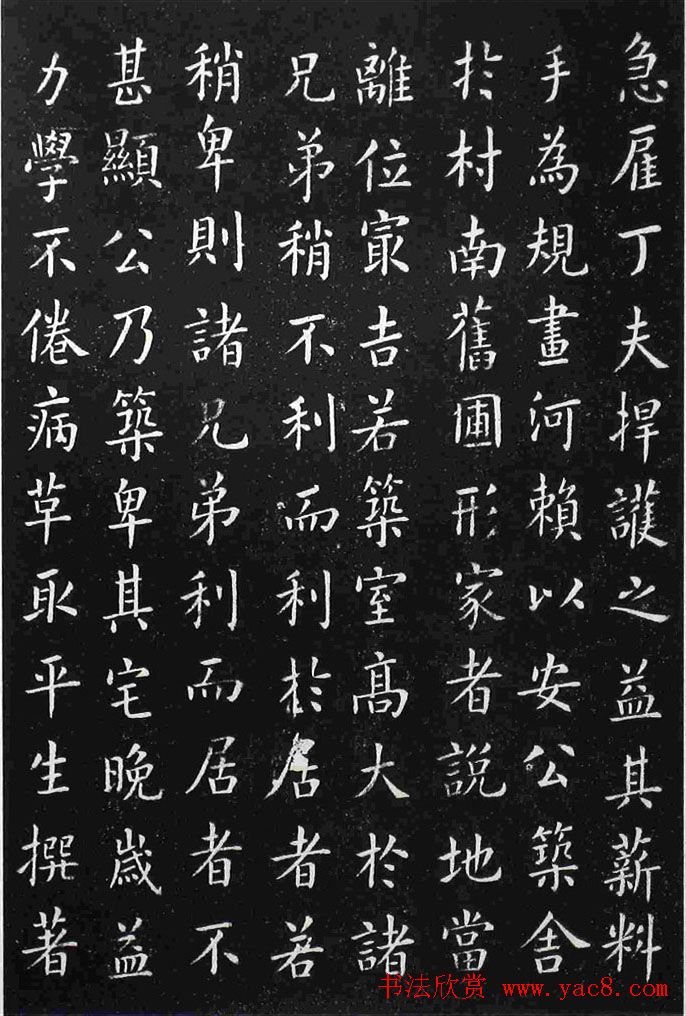 急雇丁夫捍護之益其薪料
手為規畫河賴以安公築舍
於村南舊圃形家者說地當
離位㝡吉若築室髙大於諸
兄弟稍不利而利於居者若
稍卑則諸兄弟利而居者不
甚顯公乃築卑其宅晚歲益
力學不倦病革取平生撰著
书法欣赏 www.yac8.com